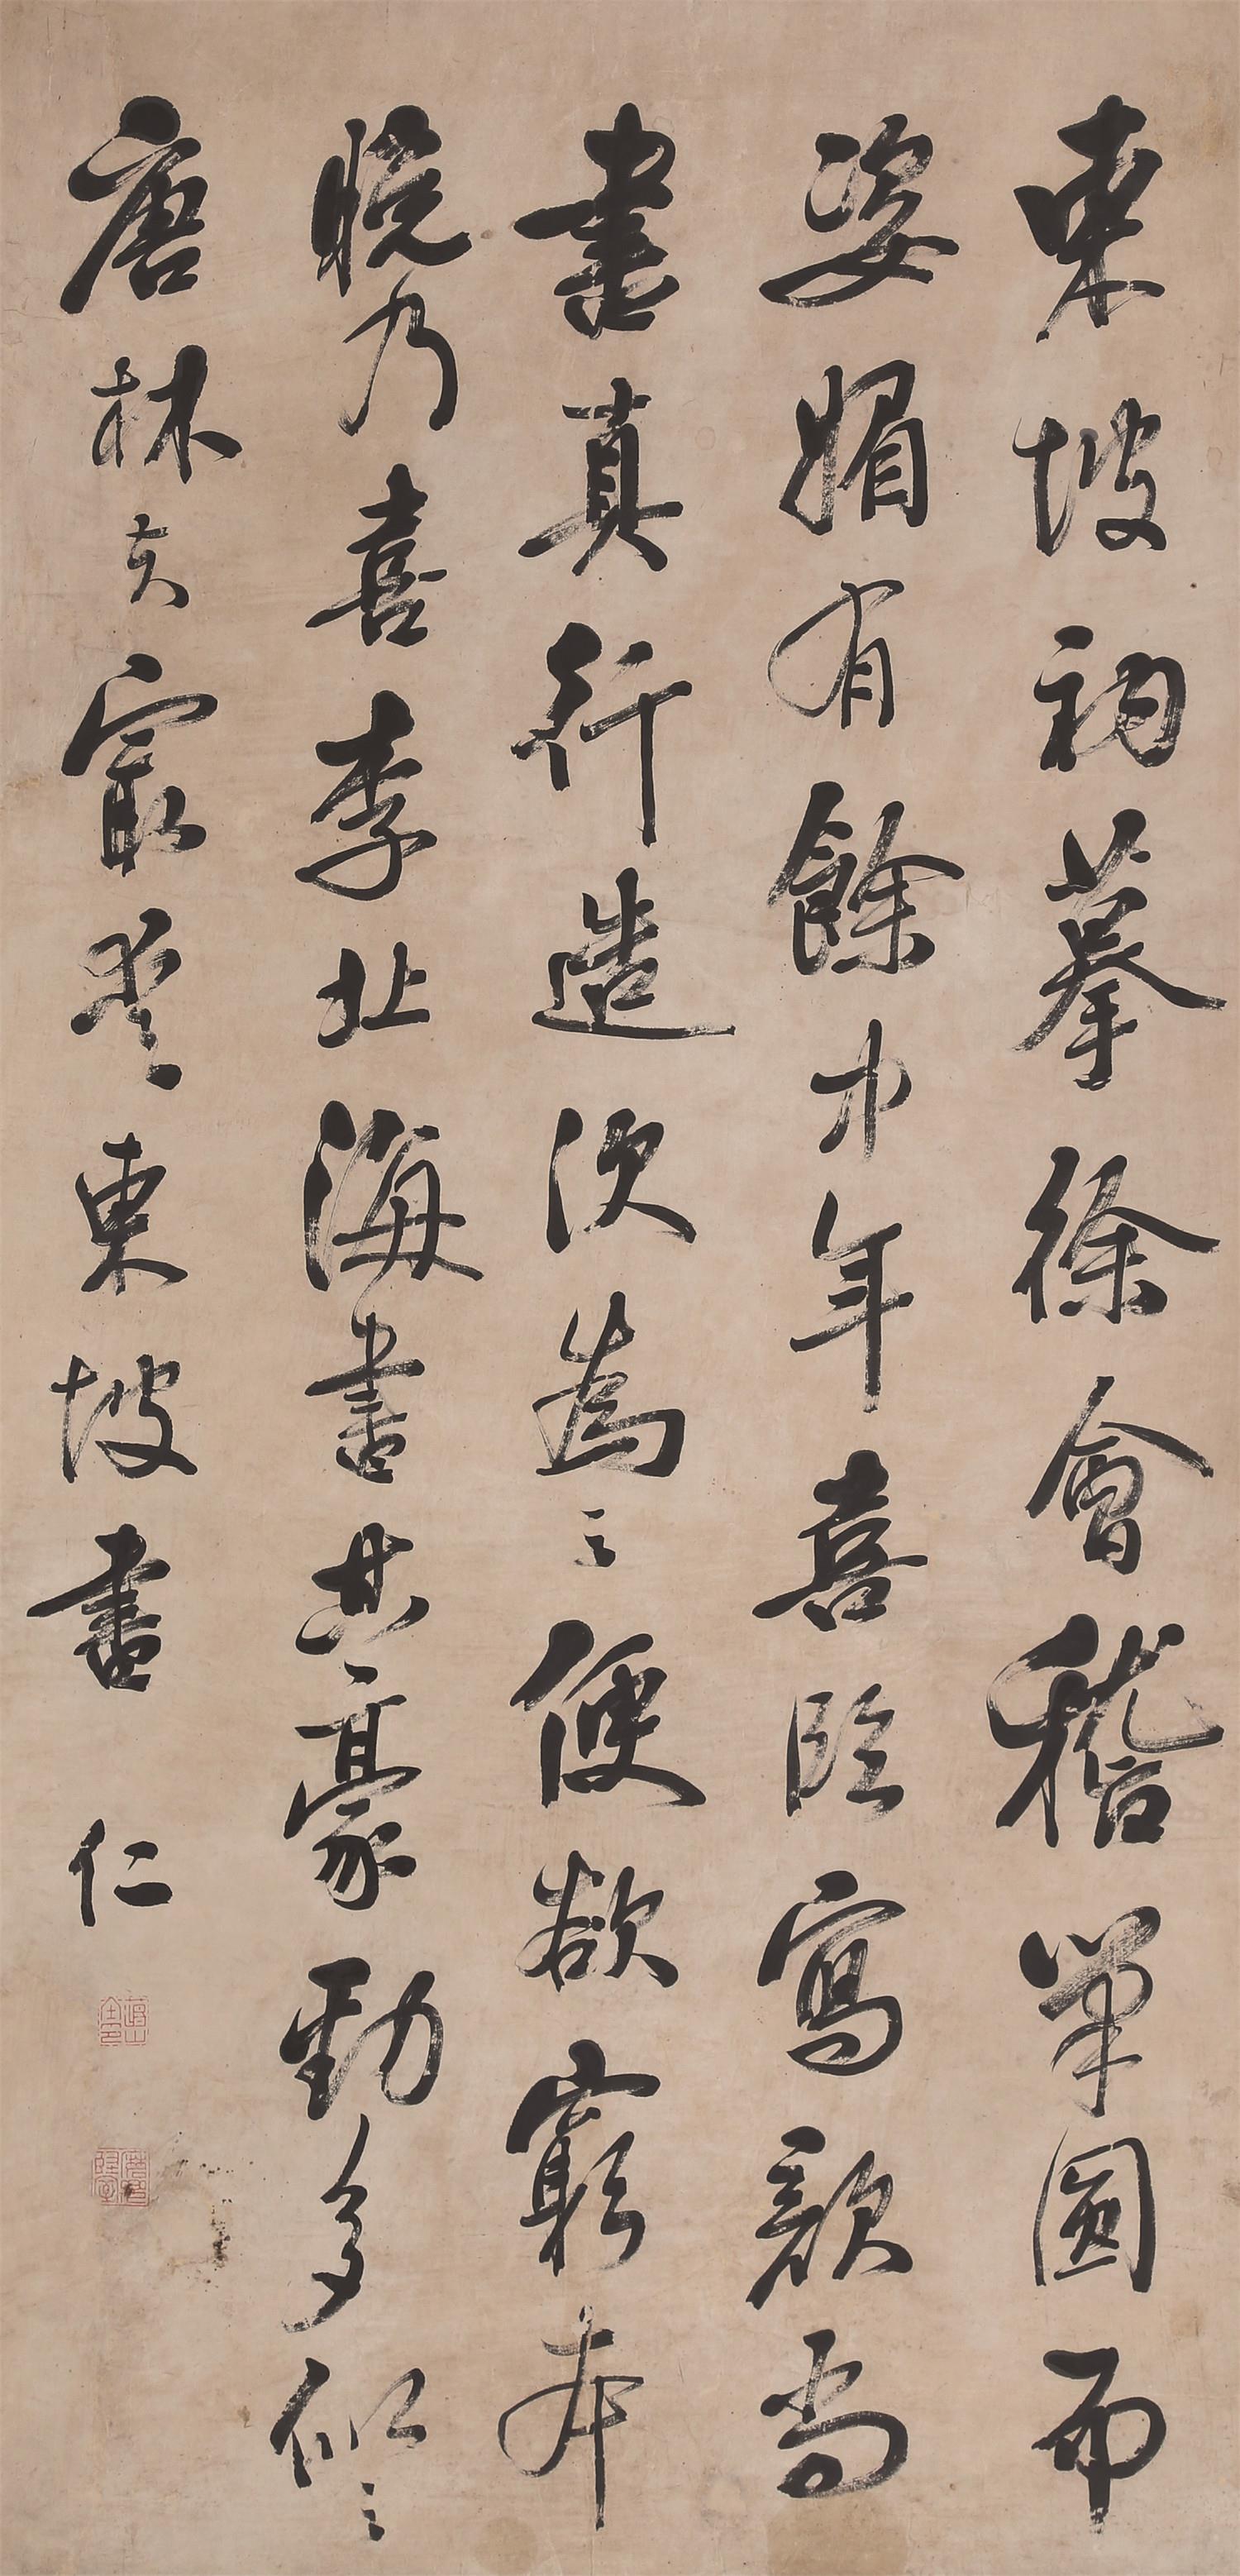 東坡初摹徐會稽筆圓而
姿媚有餘中年喜臨寫顔尚
書真行造次為之便欲窮本
晚乃喜李北海書其豪勁多似之
唐林夫㝡東坡書 仁